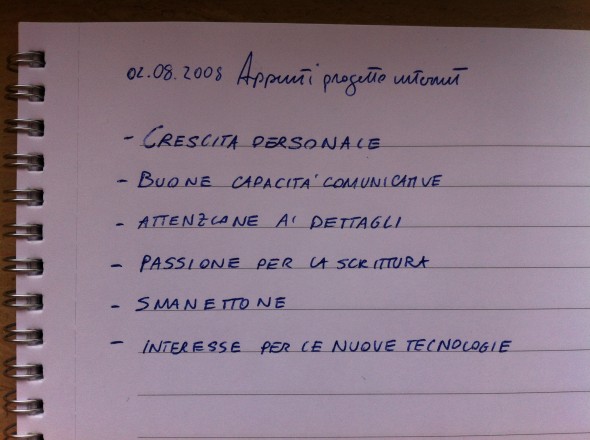 02.08.2008 Appunti progetto internet
- CRESCITA PERSONALE
- BUONE CAPACITA' COMUNICATIVE
- ATTENZIONE AI DETTAGLI
- PASSIONE PER LA SCRITTURA
- SMANETTONE
- INTERESSE PER LE NUOVE TECNOLOGIE